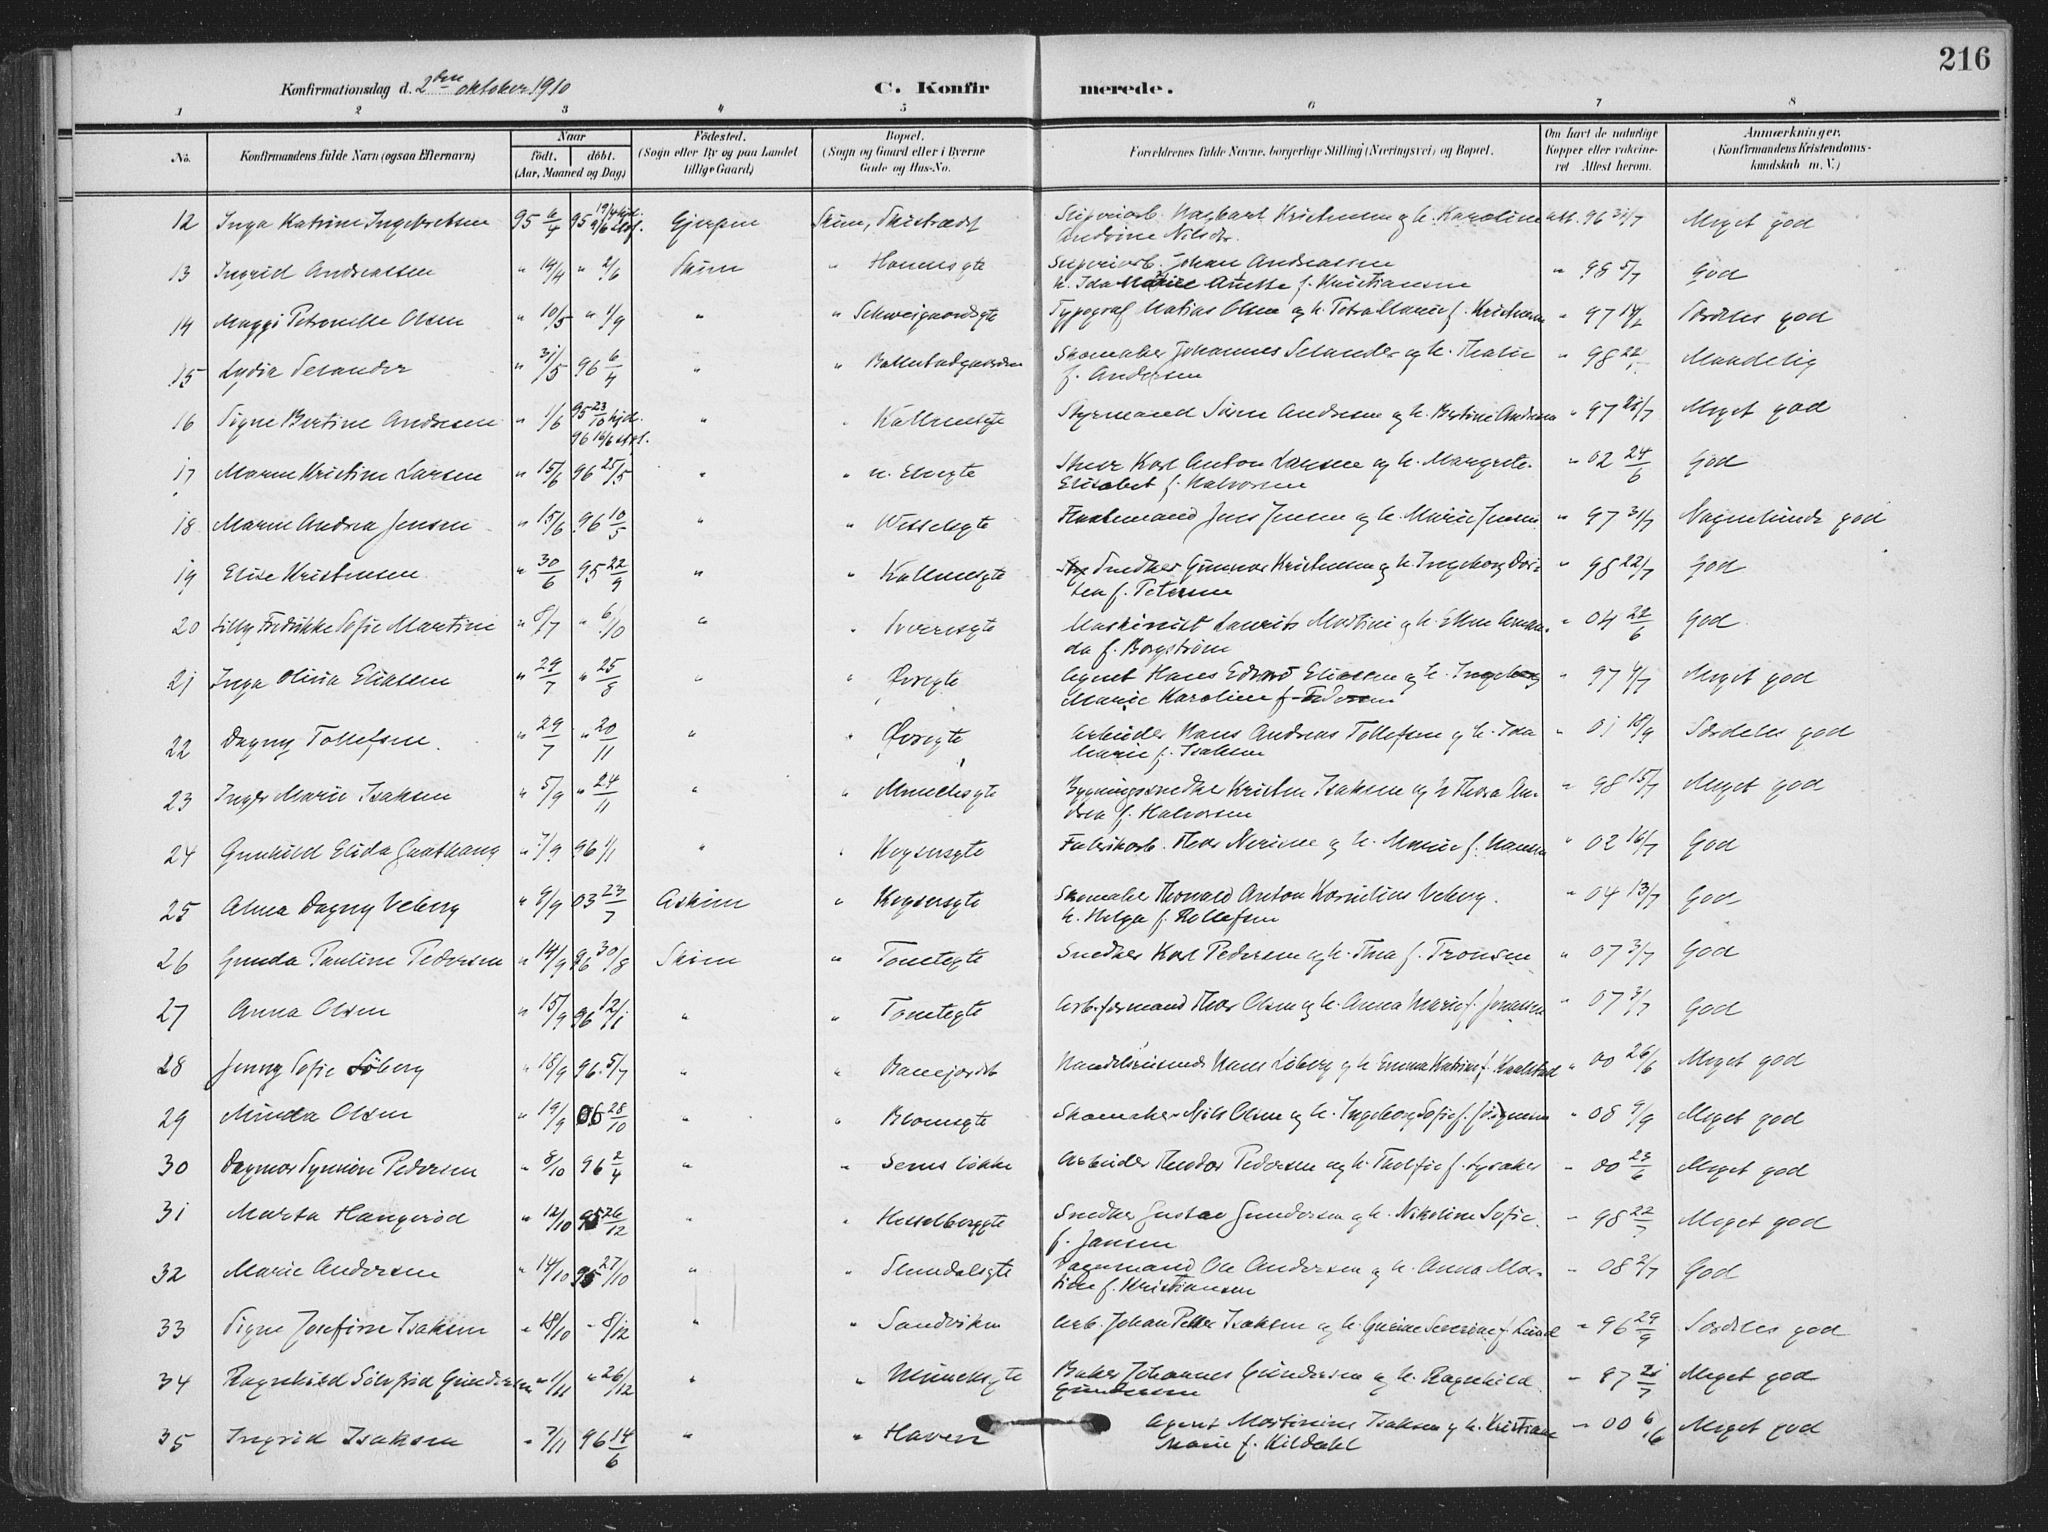 216
Konfirmationsdag d. 2den oktober 1910
C. Konfirmerede.
1 2 3 4 5 6 7 8
No. Konfirmandens fulde Navn (ogsaa Efternavn) Naar födt. döbt. (Aar, Maaned og Dag) Födested. (Sogn eller By og paa Landet tillige Gaard) Bopæl. (Sogn og Gaard eller i Byerne Gade og Hus-No. Forældrenes fulde Navne, borgerlige Stilling (Næringsvei) og Bopæl. Om havt de naturlige Kopper eller vaccineret Attest herom. Anmærkninger. (Konfirmandens Kristendomskundskab m. V.)
12 Inga Katrine Ingebretsen 95 6/4 95 Gjerpen Skien, Kristensen og h. Karoline att. 96 31/7 Meget god
Andrine Nilsdr.
13 Ingrid Andreassen " 14/4 " 2/6 Skien " Hansensgte Johan Andreassen " 98 5/7 God
h. Ida Anette f. Kristiansen
14 Maggi Petronelle Olsen " 10/5 " 1/9 " " Schweigaardsgte Typograf Matias Olsen og h. Petra Marie f. Kristensen " 97 Særdeles god
15 Lydia Selander " 31/5 96 6/4 " " Skomaker Johannes Selander og h. Thalie " 98 22/ Maadelig
f. Andersen
16 Signe Bertine Andresen " 1/6 95 23/10 hjd. 96 16/6 stf. " " Styrmand Søren Andresen og h. Bertine Andresen " 97 Meget god
17 Maren Kristine Larsen " 15/6 96 25/5 " " Karl Anton Larsen og h. Margrete " 02 24/6 God
Elisabet f. Halvorsen
18 Maren Andrea Jensen " 15/6 96 10/5 " " Wesselsgte Jens Jensen og h. Marie Jensen " 97 31/7 Nogenlunde god
19 Elise Kristensen " 30/6 95 22/9 " " Snedker Gunnar Kristensen og h. Ingeborg Dor- " 98 22/7 God
tea f. Petersen
20 Lilly Fredrikke Sofie Martini " 8/7 " 6/10 " " Sverresgte Maskinist Laurits Martini og h. Ellen Aman- " 04 22/6 God
da f. Borgstrøm
21 Inga Olivia Eliasen " 29/7 " 25/8 " " Øvregte Agent Hans Edvard Eliasen og h. Ingeborg " 97 Meget god
Marie Karoline f. Pedersen
22 Dagny Tollefsen. " 29/7 " 20/11 " " Øvregte Arbeider Hans Andreas Tollefsen og h. Ida " 01 Særdeles god
Marie f. Isaksen
23 Inger Marie Isaksen " 5/9 " 24/11 " " Munchsgte Bygningssnedker Kristen Isaksen og h. Thora An- " 98 15/7 Meget god
drea f. Halvorsen
24 Gunhild Elida " 7/9 96 1/1 " " Keysersgte Fabrikarb. Thor og h. Marie f. Hansen " 02 16/7 God
25 Alma Dagny Veberg " 9/9 03 23/7 Askim " Keysersgte Skomaker Thorvald Anton Kornelius Veberg. " 04 13/7 God
h. Helga f. Rollefsen
26 Gunda Pauline Pedersen " 14/9 96 30/8 Skien " Tomtegte Snedker Karl Pedersen og h. Thea f. Tronsen " 07 3/7 God
27 Anna Olsen " 15/9 96 12/1 " " Tomtegte Arb.formand Thor Olsen og h. Anna Marie f. Jonassen " 07 3/7 God
28 Jenny Sofie Løberg " 18/9 96 5/7 " " Handelsreisende Hans Løberg og h. Emma Katrine f. " 00 26/6 Meget god
29 Minda Olsen " 19/9 06 28/10 " " Blomsgte Skomaker Nils Olsen og h. Ingeborg Sofie f. Jørgensen " 08 9/9 Meget god
30 Dagmar Synnøve Pedersen " 8/10 96 2/4 " " Sems løkke Arbeider Theodor Pedersen og h. f. Lysaker " 00 23/6 Meget god
31 Marta Haugerød " 12/10 95 26/12 " " Hesselberggte Snedker Gustav Gundersen og h. Nikoline Sofie " 98 22/7 Meget god
f. Jansen
32 Marie Andersen " 14/10 95 27/10 " " Ole Andersen og h. Anna Ma- " 08 2/7 God
tine f. Kristiansen
33 Signe Josefine Isaksen " 18/10 " 8/12 " " Sandviken Arb. Johan Peter Isaksen og h. Gurine Severine f. Lund " 96 29/9 Særdeles god
34 Ragnhild Solfrid Gundersen " 1/11 " 26/12 " " Munchsgte Baker Johannes Gundersen og h. Ragnhild " 97 21/7 Meget god
Gundersen
35 Ingrid Isaksen " 7/11 96 14/6 " " Haven Agent Martinius Isaksen og h. Kristiane " 00 6/6 Meget god
Marie f. Kildahl